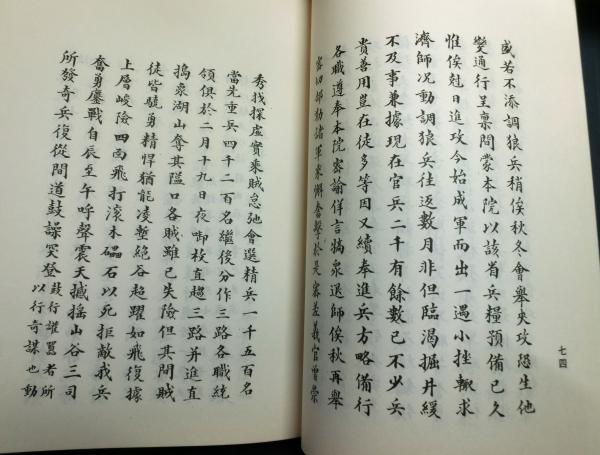 或若不添調狼兵稍俟秋冬會舉夾攻恐生他
變通行呈稟間蒙本院以該省兵糧預備已久
惟俟尅日進攻今始成軍而出一遇小挫輒求
濟師況動調狼兵往返數月非但臨渴掘井緩
不及事兼據現在官兵二千有餘數已不少兵
貴善用豈在徒多等因又續奉進兵方略備行
各職遵奉本院密諭佯言犒衆退師俟秋再舉
密切部勒諸軍乘懈奮擊於是密差義官曾崇
七四
秀找探虛實乘賊怠弛會選精兵一千五百名
當先重兵四千二百名繼後分作三路各職統
領俱於二月十九日夜啣枚直趨三路並進直
搗象湖山奪其隘口各賊雖已失險但其間賊
徒皆驍勇精悍猶能凌塹絕谷超躍如飛復據
上層峻險四面飛打滾木礧石以死拒敵我兵
奮勇鏖戰自辰至午呼聲震天撼搖山谷三司
所發奇兵復從間道鼓譟突登鼓行譟罵者所以行奇謀也動